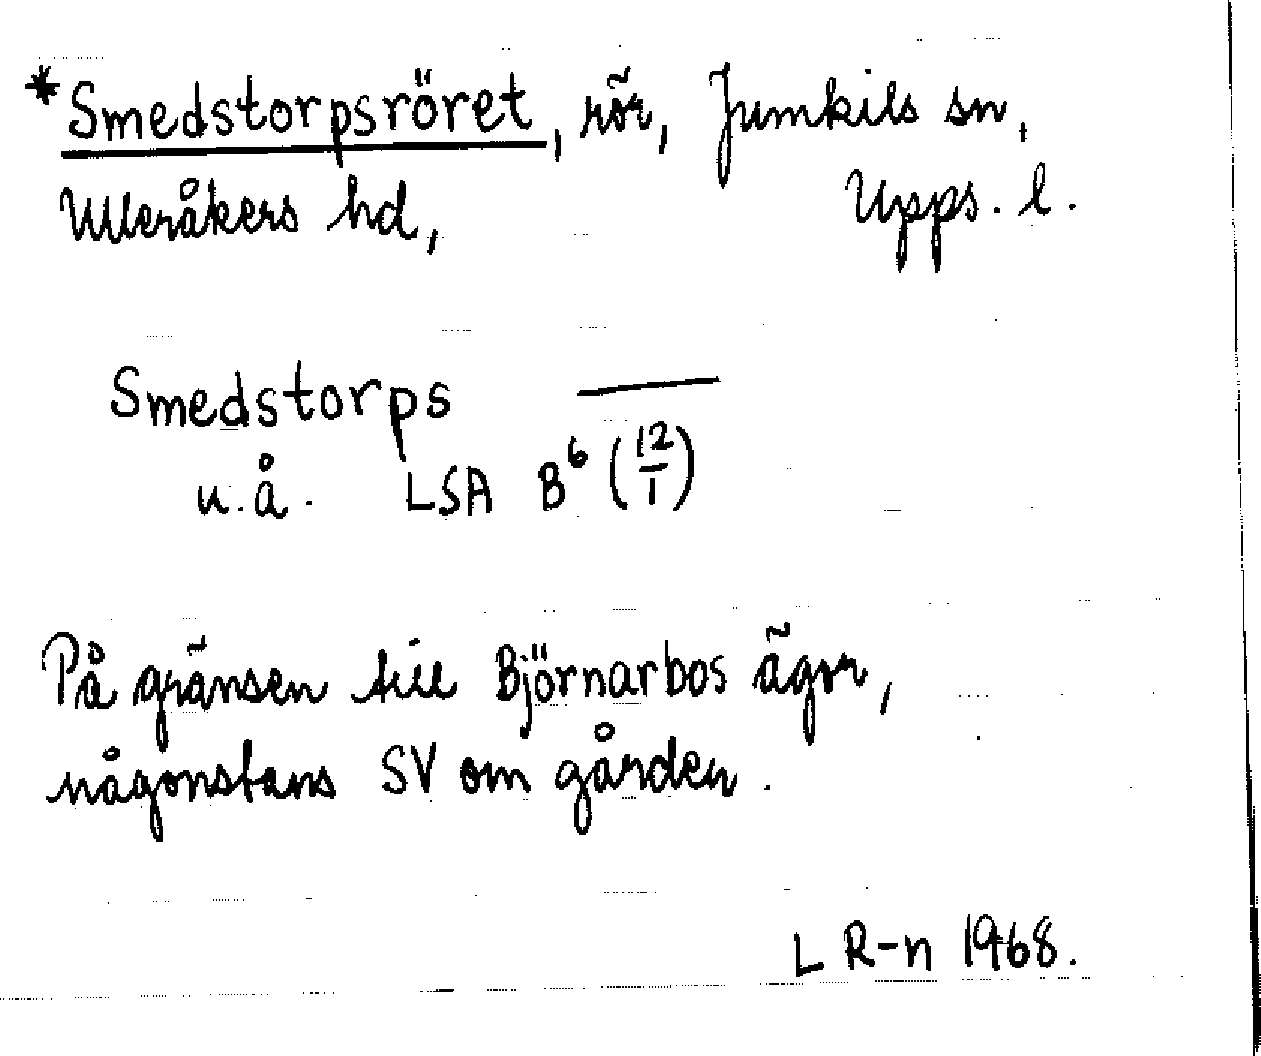 *Smedstorpsröret, rör, Jumkils sn,
Ulleråkers hd, Upps. l.
Smedstorps —
u.å. LSA B⁶ (12/1)
På gränsen till Björnarbos ägor,
någonstans SV om gården.
L R-n 1968.